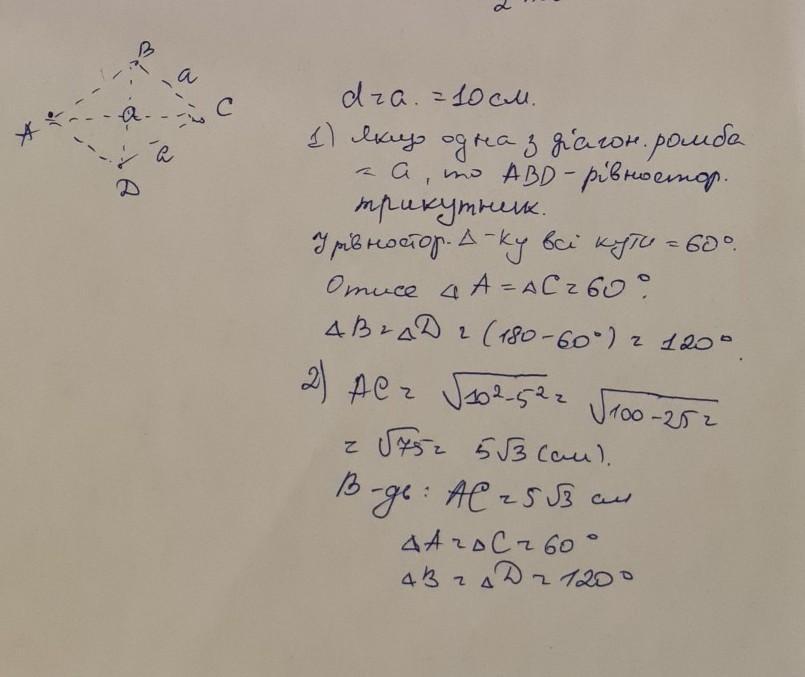 B
a
A
a
C
a
D
d = a. = 10 см.
1) Якщо одна з діагон. ромба
= a, то ABD - рівностор.
трикутник.
У рівностор. Δ-ку всі кути = 60°.
Отже ∠A = ∠C = 60°.
∠B = ∠D = (180-60°) = 120°.
2) AC = √10²-5² = √100-25 =
= √75 = 5√3 (см).
В-дь: AC = 5√3 см
∠A = ∠C = 60°
∠B = ∠D = 120°